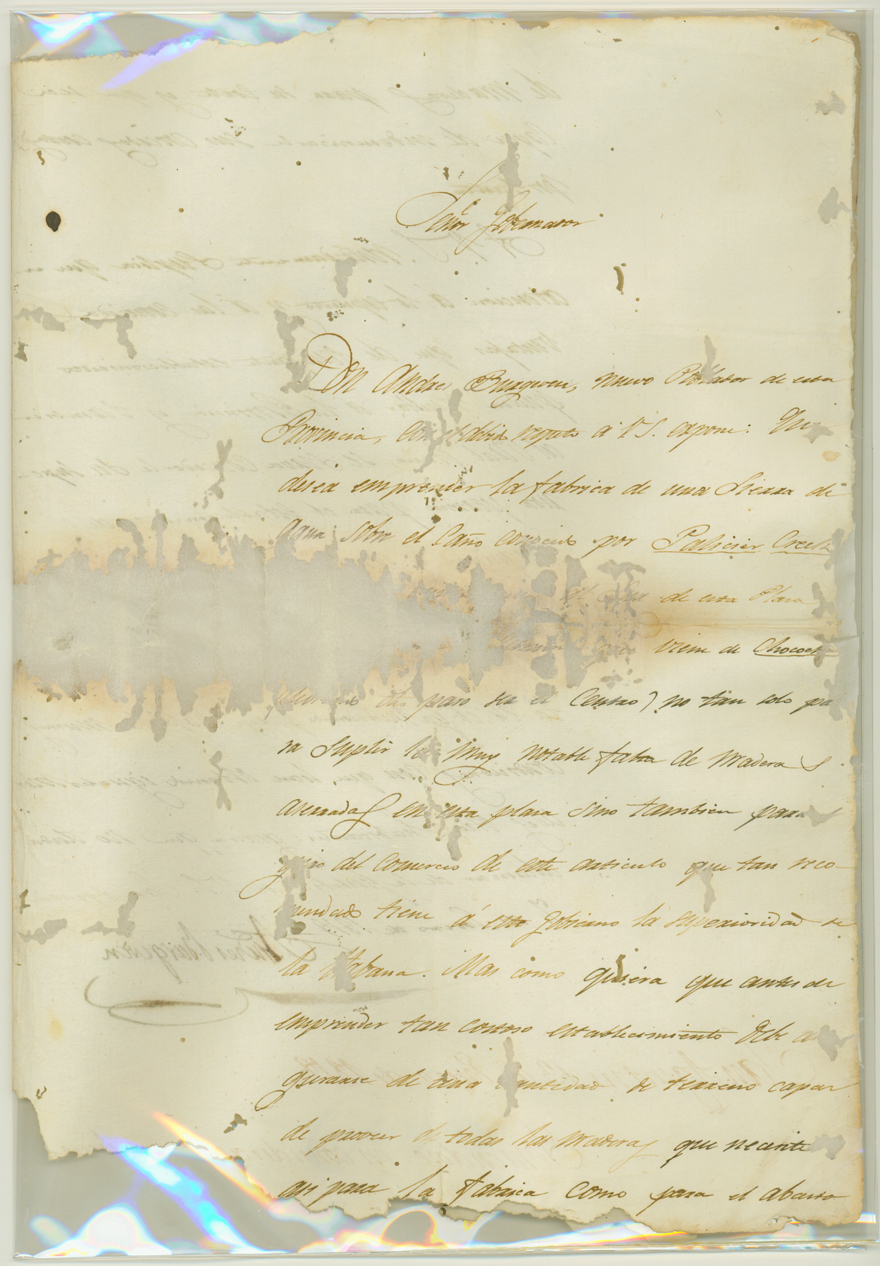 Señor Gobernador
Don Andres Burgevin, nuevo Poblador de esta
Provincia, con debido respeto a V S. expone: Que
desea emprender la fabrica de una Sierra de
Agua sobre el Caño conocido por Palicier Creek
de esta Plaza
viene de
paso sea el Censao) no tan solo pa
ra Suplir la muy notable falta de Madera s
aserradas en esta plaza sino tambien para
del Comercio de este articulo que tan reco
mendado tiene á este Gobierno la Superioridad de
la Habana. Mas como quiera que antes de
emprender tan costoso establecimiento debe a
gurarse de una cantidad de terreno capaz
de proveer de todas las Maderas que necesite
asi para la fabrica como para el abasto